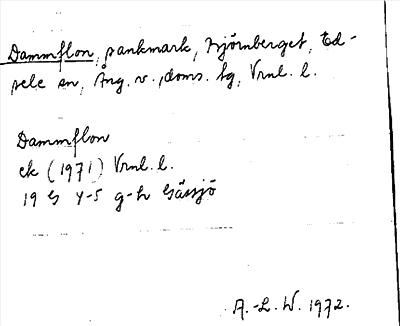 Dammflon, sankmark, Björnberget, Ed-
sele sn, Ång. v. doms. tg, Vrnl. l.
Dammflon
ek (1971) Vrnl. l.
19 G 4-5 g-h Gässjö
A.-L. W. 1972.